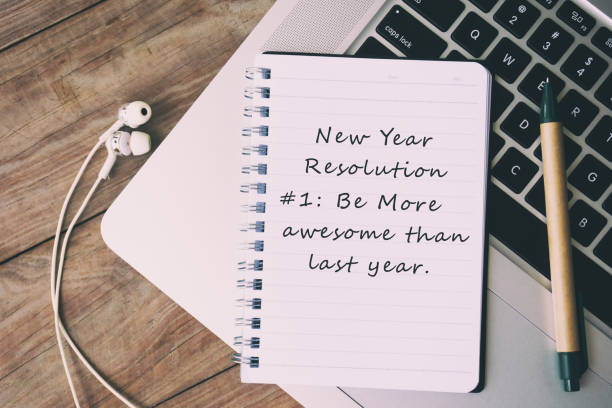 New Year
Resolution
#1: Be More
awesome than
last year.
caps lock
@ 2
# 3
$ 4
W
E
R
D
F
G
C
V
B